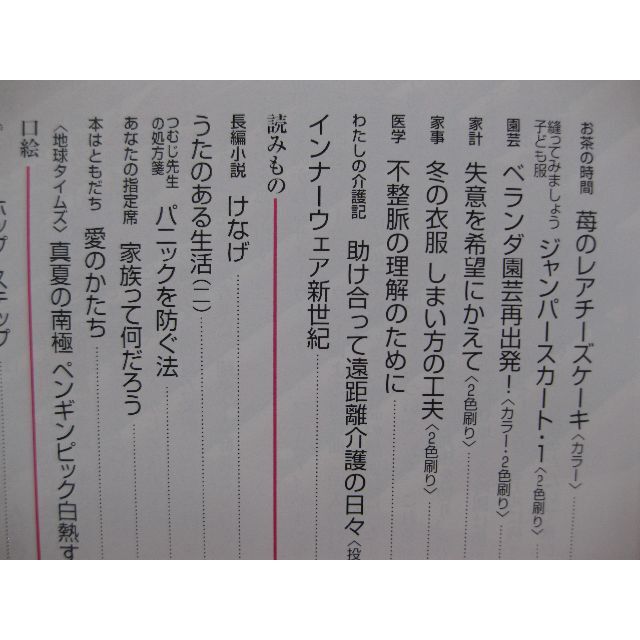 お茶の時間 苺のレアチーズケーキ〈カラー〉
縫ってみましょう
子ども服 ジャンパースカート・1〈2色刷り〉
園芸 ベランダ園芸再出発！〈カラー・2色刷り〉
家計 失意を希望にかえて〈2色刷り〉
家事 冬の衣服 しまい方の工夫〈2色刷り〉
医学 不整脈の理解のために
わたしの介護記 助け合って遠距離介護の日々〈投
インナーウェア新世紀
読みもの
長編小説 けなげ
うたのある生活（二）
つむじ先生
の処方箋 パニックを防ぐ法
あなたの指定席 家族って何だろう
本はともだち 愛のかたち
〈地球タイムズ〉真夏の南極 ペンギンピック白熱す
口絵
ホップ ステップ